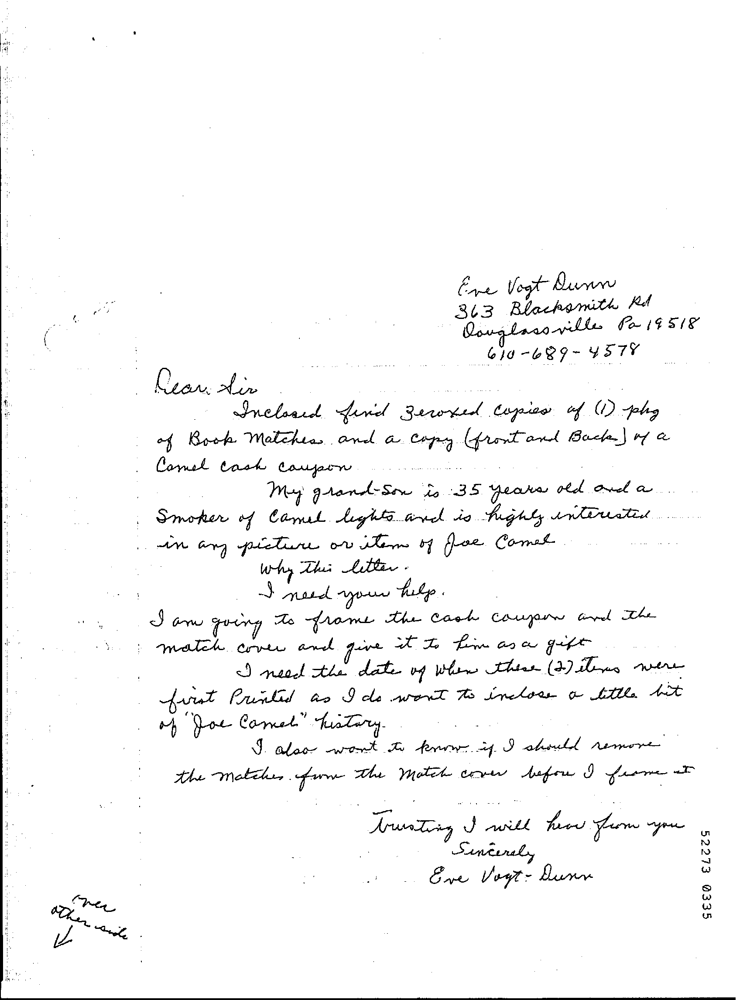 Eve Vogt Dunn
363 Blacksmith Rd
Douglassville Pa 19518
610-689-4578
Dear Sir
Inclosed find Zeroxed copies of (1) pkg
of Book Matches and a copy (front and Back) of a
Camel cash coupon
My grand-son is 35 years old and a
Smoker of Camel lights and is highly interested
in any picture or item of Joe Camel
Why this letter.
I need your help.
I am going to frame the cash coupon and the
match cover and give it to him as a gift
I need the date of when these (2) items were
first Printed as I do want to inclose a little bit
of "Joe Camel" history.
I also want to know if I should remove
the matches from the match cover before I frame it
Trusting I will hear from you
Sincerely
Eve Vogt-Dunn
over
other side
52273 0335